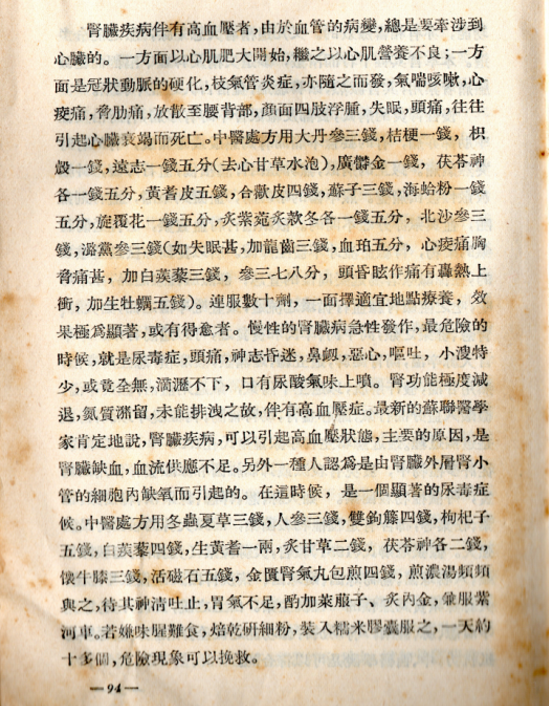 腎臟疾病伴有高血壓者,由於血管的病變,總是要牽涉到
心臟的。一方面以心肌肥大開始,繼之以心肌營養不良;一方
面是冠狀動脈的硬化,枝氣管炎症,亦隨之而發,氣喘咳嗽,心
痠痛,脅肋痛,放散至腰背部,顏面四肢浮腫,失眠,頭痛,往往
引起心臟衰竭而死亡。中醫處方用大丹參三錢,桔梗一錢,枳
殼一錢,遠志一錢五分(去心甘草水泡),廣鬱金一錢,茯苓神
各一錢五分,黃耆皮五錢,合歡皮四錢,蘇子三錢,海蛤粉一錢
五分,旋覆花一錢五分,炙紫菀炙款冬各一錢五分,北沙參三
錢,潞黨參三錢(如失眠甚,加龍齒三錢,血珀五分,心痠痛胸
脅痛甚,加白蒺藜三錢,參三七八分,頭昏眩作痛有轟熱上
衝,加生牡蠣五錢)。連服數十劑,一面擇適宜地點療養,效
果極爲顯著,或有得愈者。慢性的腎臟病急性發作,最危險的
時候,就是尿毒症,頭痛,神志昏迷,鼻衂,惡心,嘔吐,小溲特
少,或竟全無,滴瀝不下,口有尿酸氣味上噴。腎功能極度減
退,氮質瀦留,未能排洩之故,伴有高血壓症。最新的蘇聯醫學
家肯定地說,腎臟疾病,可以引起高血壓狀態,主要的原因,是
腎臟缺血,血流供應不足。另外一種人認爲是由腎臟外層腎小
管的細胞內缺氧而引起的。在這時候,是一個顯著的尿毒症
候。中醫處方用冬蟲夏草三錢,人參三錢,雙鉤籐四錢,枸杞子
五錢,白蒺藜四錢,生黃耆一兩,炙甘草二錢,茯苓神各二錢,
懷牛膝三錢,活磁石五錢,金匱腎氣丸包煎四錢,煎濃湯頻頻
與之,待其神清吐止,胃氣不足,酌加萊服子、炙內金,兼服紫
河車。若嫌味腥難食,焙乾研細粉,裝入糯米膠囊服之,一天約
十多個,危險現象可以挽救。
—94—